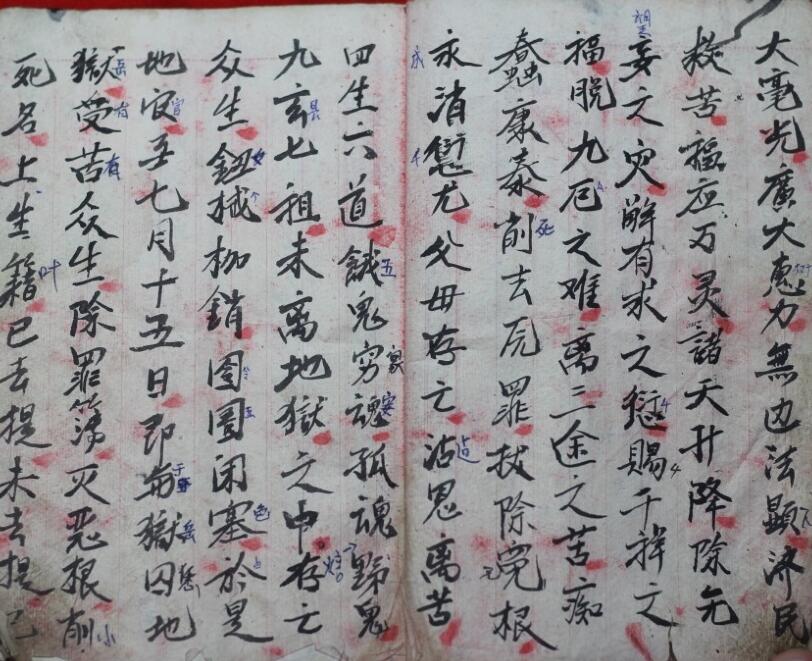 大毫光廣大惠力無边法顯济民
救苦福应万灵諸天升降除无
妄之灾解有求之愆賜千祥之
福脱九厄之难离三途之苦痴
蠢康泰削去死罪拔除冤根
永消愆尤父母存亡沾恩离苦
四生六道餓鬼穷魂孤魂野鬼
九玄七祖未离地獄之中存亡
众生鈕械枷銷囹圄闭塞於是
地官于七月十五日即 獄囚地
獄受苦众生除罪簿灭恶根削
死名上生籍已去提未去提已